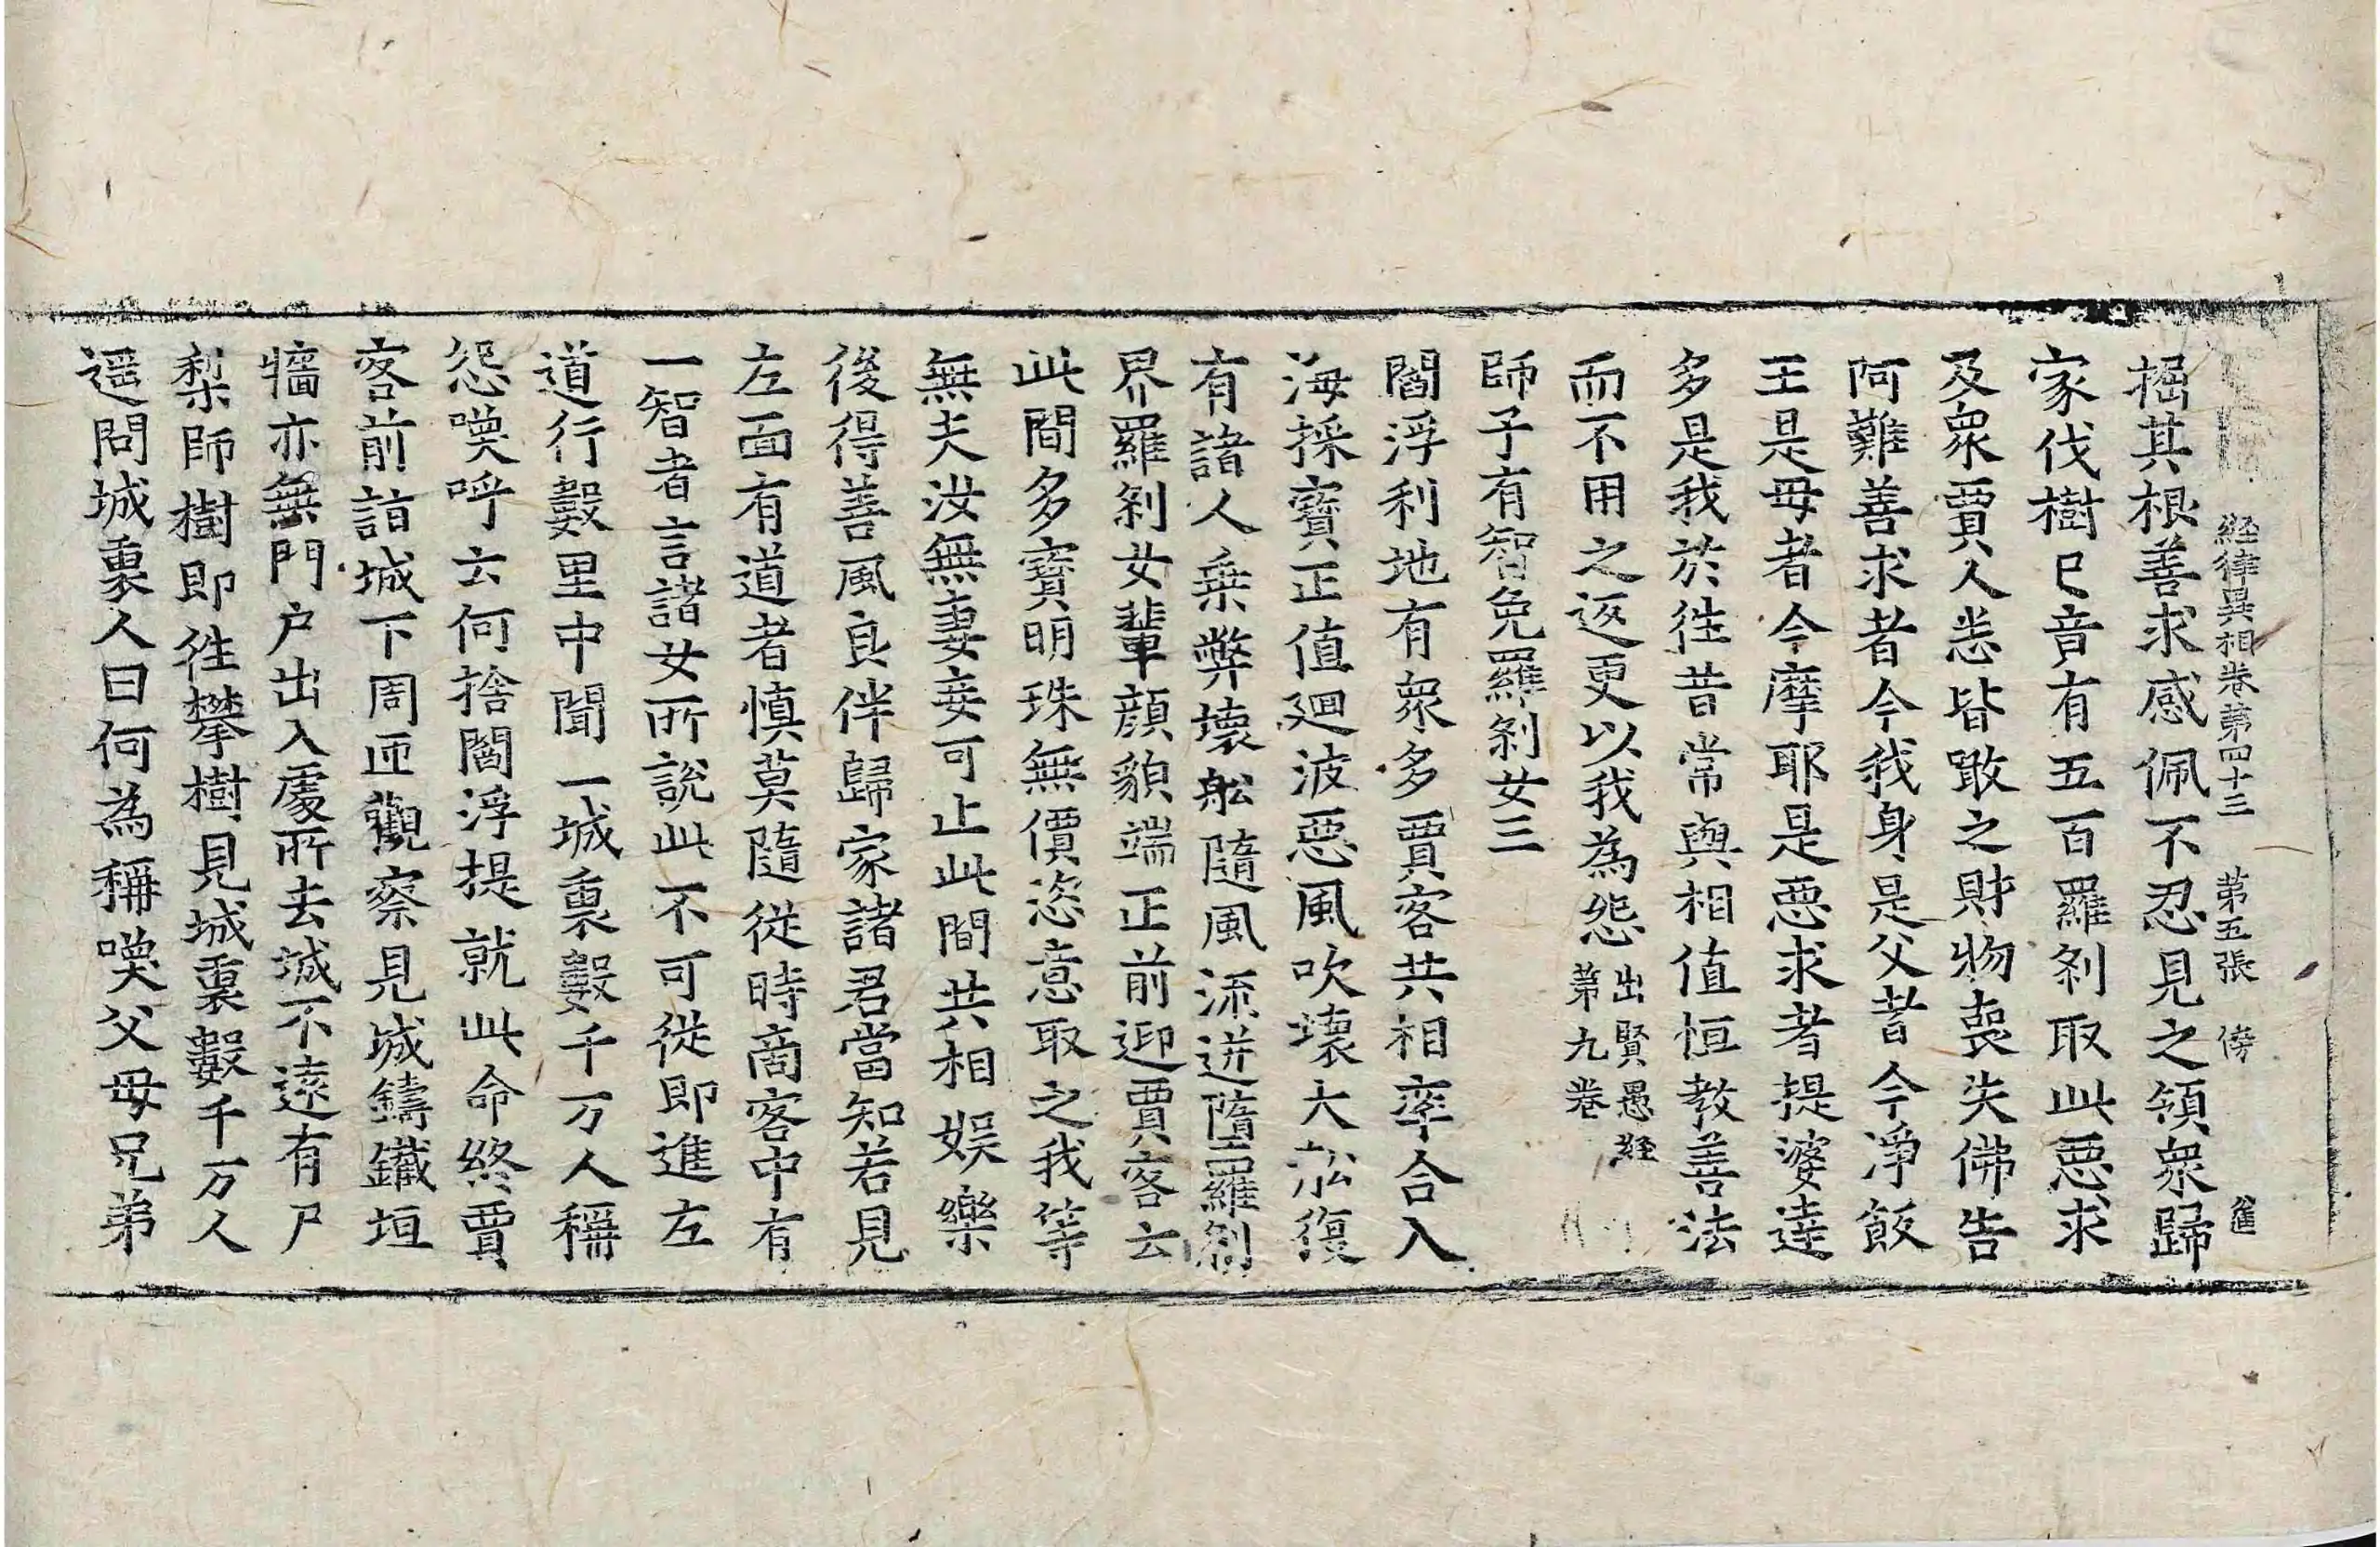 経律異相卷第四十三 第五張 傍
掘其根善求感佩不忍見之領衆歸
家伐樹已音有五百羅刹取此惡求
及衆賈人悉皆噉之財物喪失佛告
阿難善求者今我身是父者今淨飯
王是母者今摩耶是惡求者提婆達
多是我於徃昔常與相值恒教善法
而不用之返更以我為怨出賢愚経第九卷
師子有智免羅刹女三
閻浮利地有衆多賈客共相率合入
海採寶正值廻波惡風吹壞大舩復
有諸人乗弊壞舩隨風流迸墮羅刹
界羅刹女輩顔貌端正前迎賈客云
此間多寶明珠無價恣意取之我等
無夫汝無妻妾可止此間共相娱樂
後得善風良伴歸家諸君當知若見
左面有道者慎莫隨從時商客中有
一智者言諸女所說此不可從即進左
道行數里中聞一城裏數千万人稱
怨喚呼云何捨閻浮提就此命終賈
客前詣城下周迊觀察見城鑄鐵垣
牆亦無門户出入處所去城不遠有尸
梨師樹即徃攀樹見城裏數千万人
遥問城裏人曰何為稱喚父母兄弟